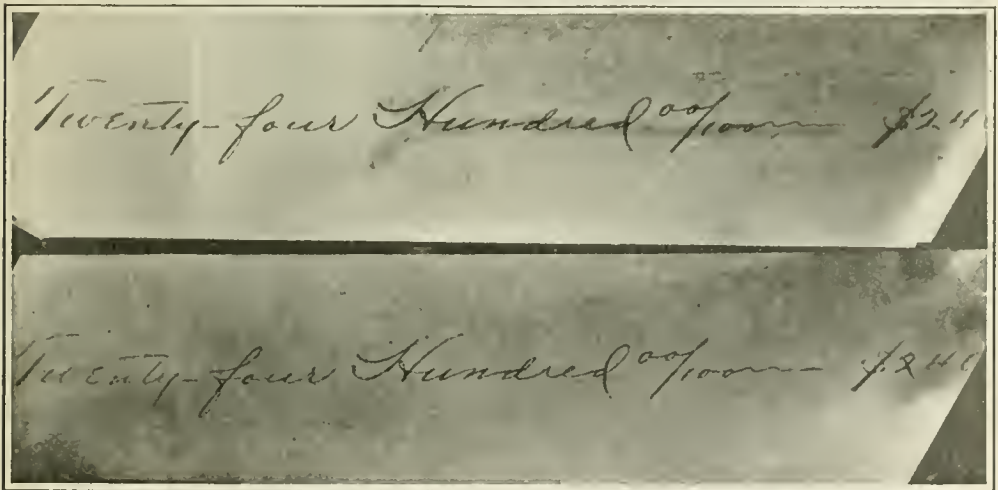 Twenty-four Hundred 00/100 $240
Twenty-four Hundred 00/100 $240